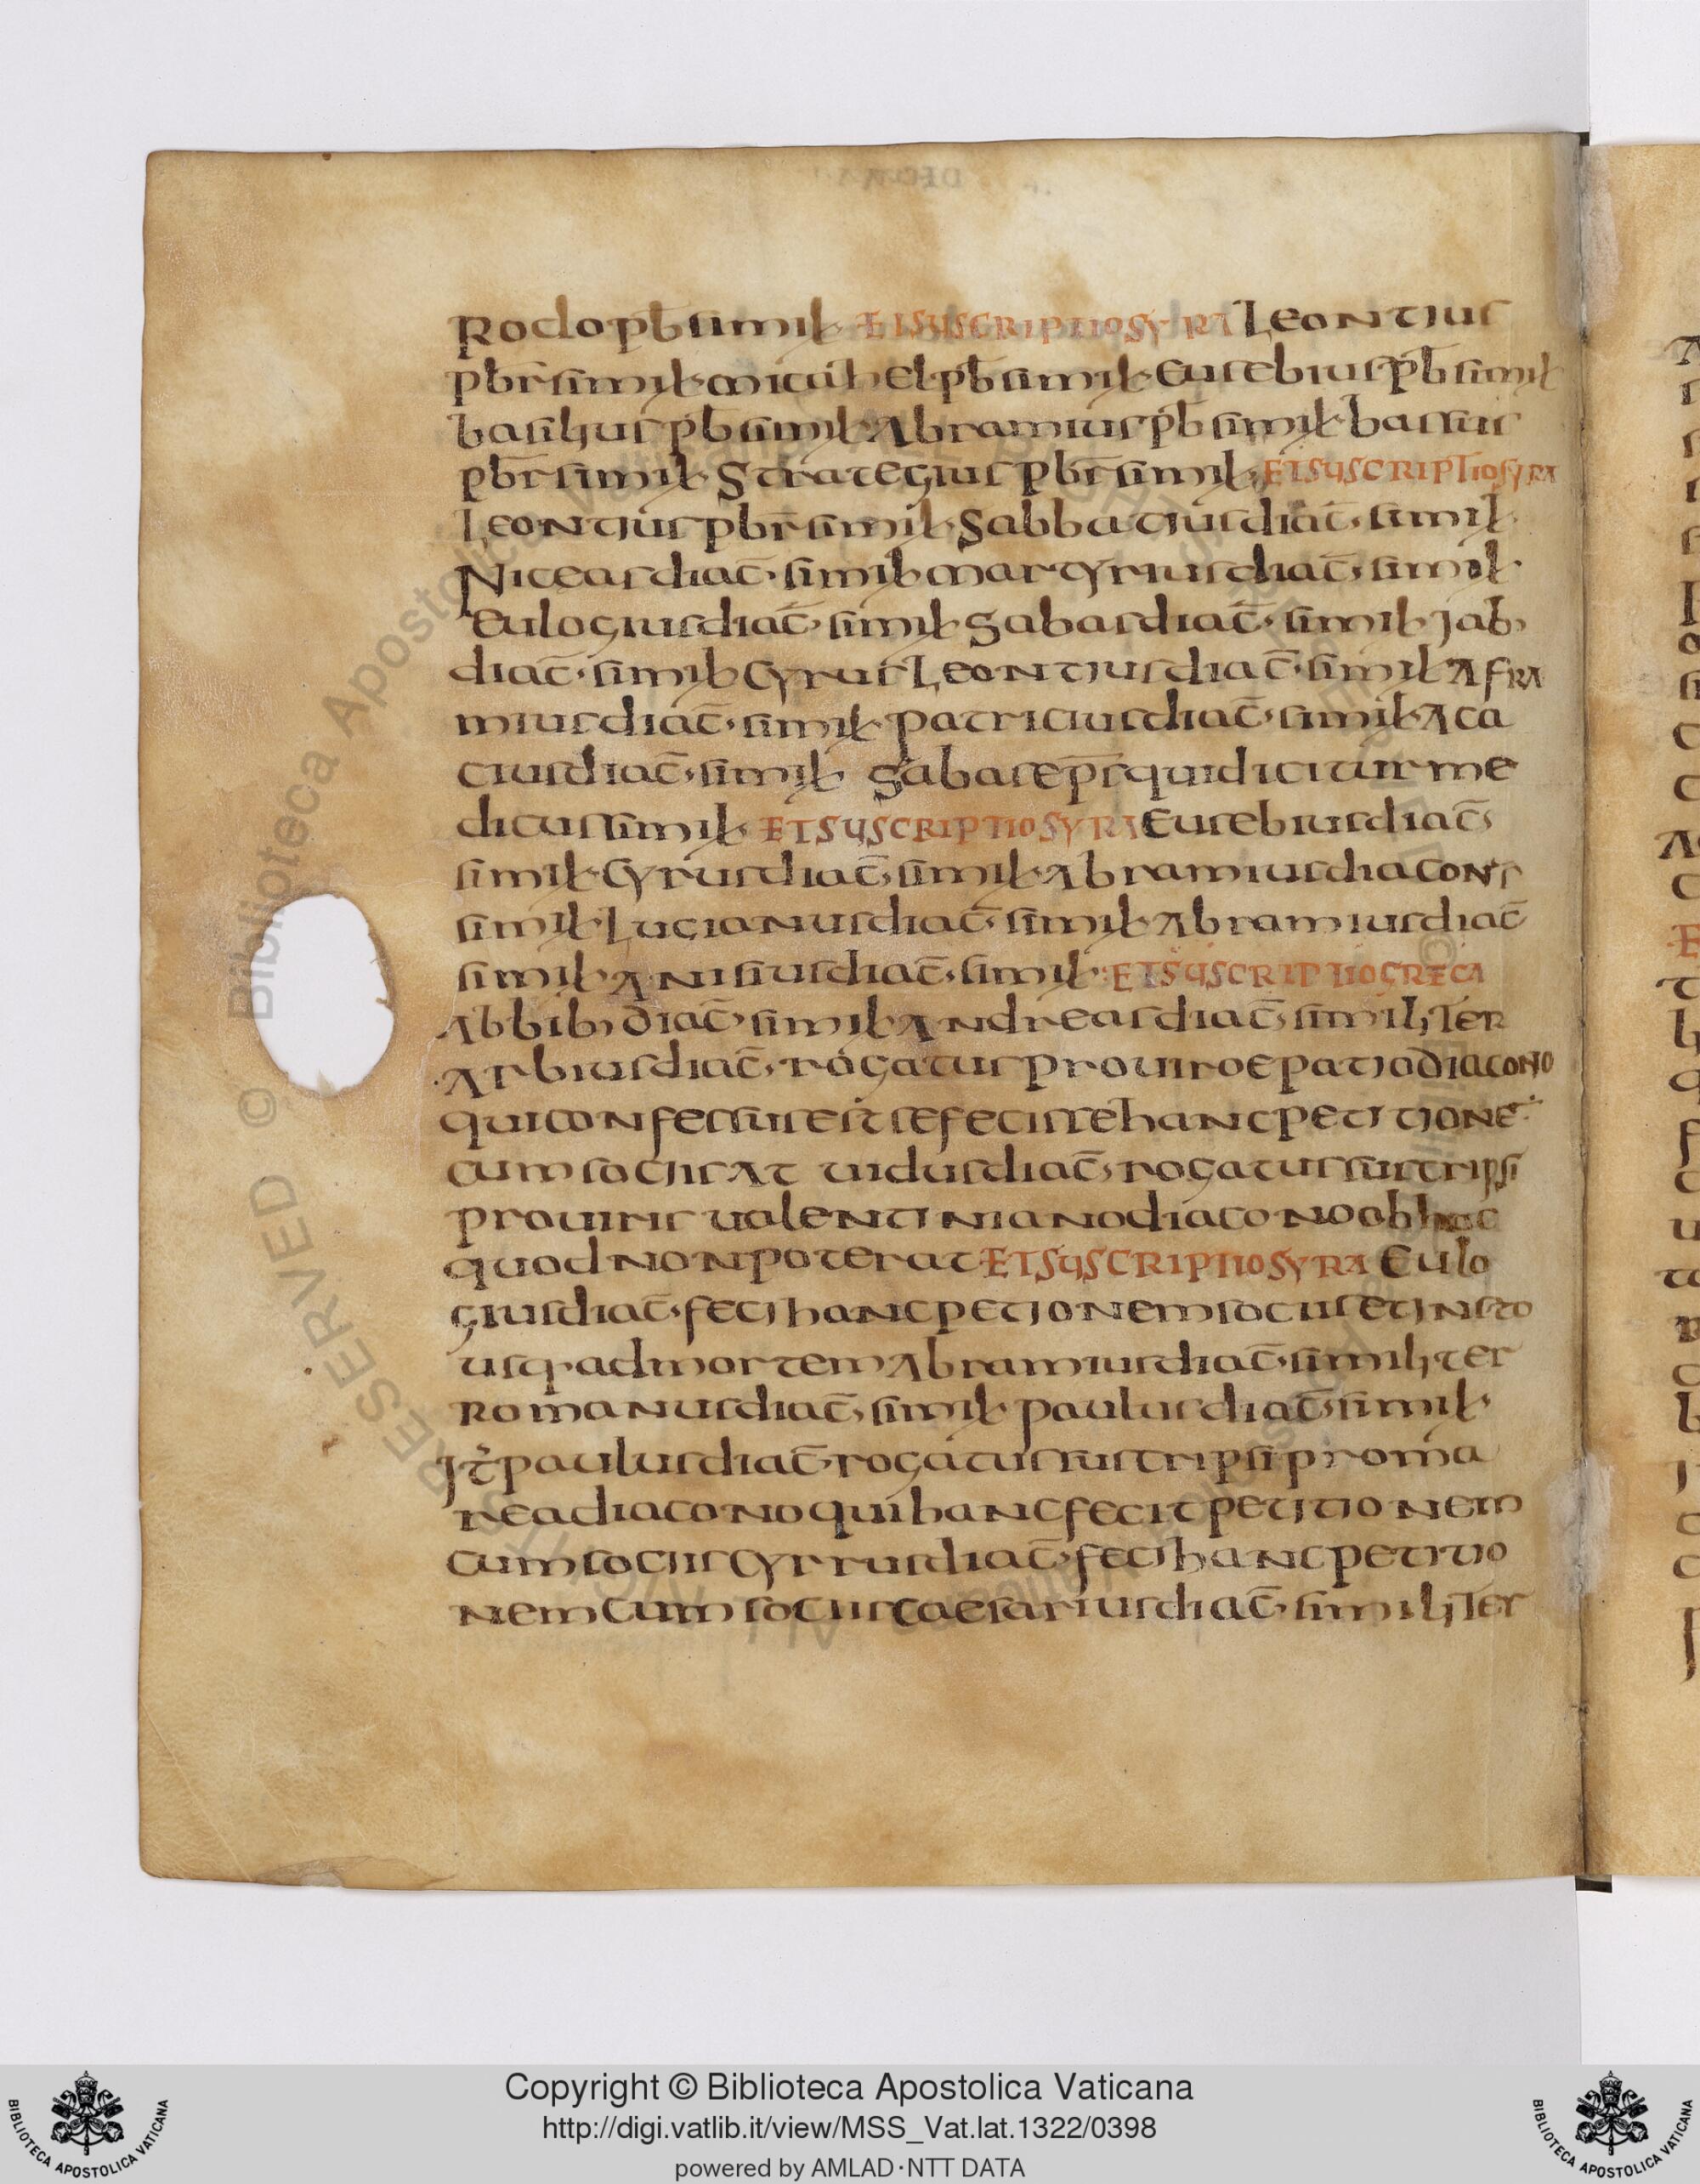 Rodo pb̄ simil· ET SUSCRIPTIO SYRA Leontius
pb̄r simil· micahel pb̄ simil· Eusebius pb̄ simil·
basilius pb̄ simil· Abramius pb̄ simil· bassus
pb̄r simil· Strategius pb̄r simil· ET SUSCRIPTIO SYRA
Leontius pb̄r simil· Sabbatius diac̄· simil·
Niceas diac̄· simil· martyrius diac̄· simil·
Eulogius diac̄· simil· Sabas diac̄· simil· Jab·
diac̄· simil· Cyrus Leontius diac̄· simil· Afra
mius diac̄· simil· patricius diac̄· simil· Aca
cius diac̄· simil· Sabas ep̄s qui dicitur me
dicus simil· ET SUSCRIPTIO SYRA Eusebius diac̄·
simil· Cyrus diac̄· simil· Abramius diacons
simil· Lucianus diac̄· simil· Abramius diac̄
simil· Anisius diac̄· simil· ET SUSCRIPTIO GRECA
Abbib· diac̄· simil· Andreas diac̄· similiter
·Arbius diac̄· rogatus pro uiro epatio diacono
qui confessus est se fecisse hanc petitione·
cum sociis At uidus diac̄· rogatus suscripsi
pro uiris ualentiniano diacono ob hoc
quod non poterat ET SUSCRIPTIO SYRA Eulo
gius diac̄· feci hanc petionem sociis et insto
usq· ad mortem Abramius diac̄· similiter
Romanus diac̄· simil· paulus diac̄· simil·
Jt̄ paulus diac̄· rogatus suscripsi pro ma
rea diacono qui hanc fecit petitionem
cum sociis Cyrrus diac̄· feci hanc petitio
nem cum sociis caesarius diac̄· similiter
Copyright © Biblioteca Apostolica Vaticana
http://digi.vatlib.it/view/MSS_Vat.lat.1322/0398
powered by AMLAD·NTT DATA